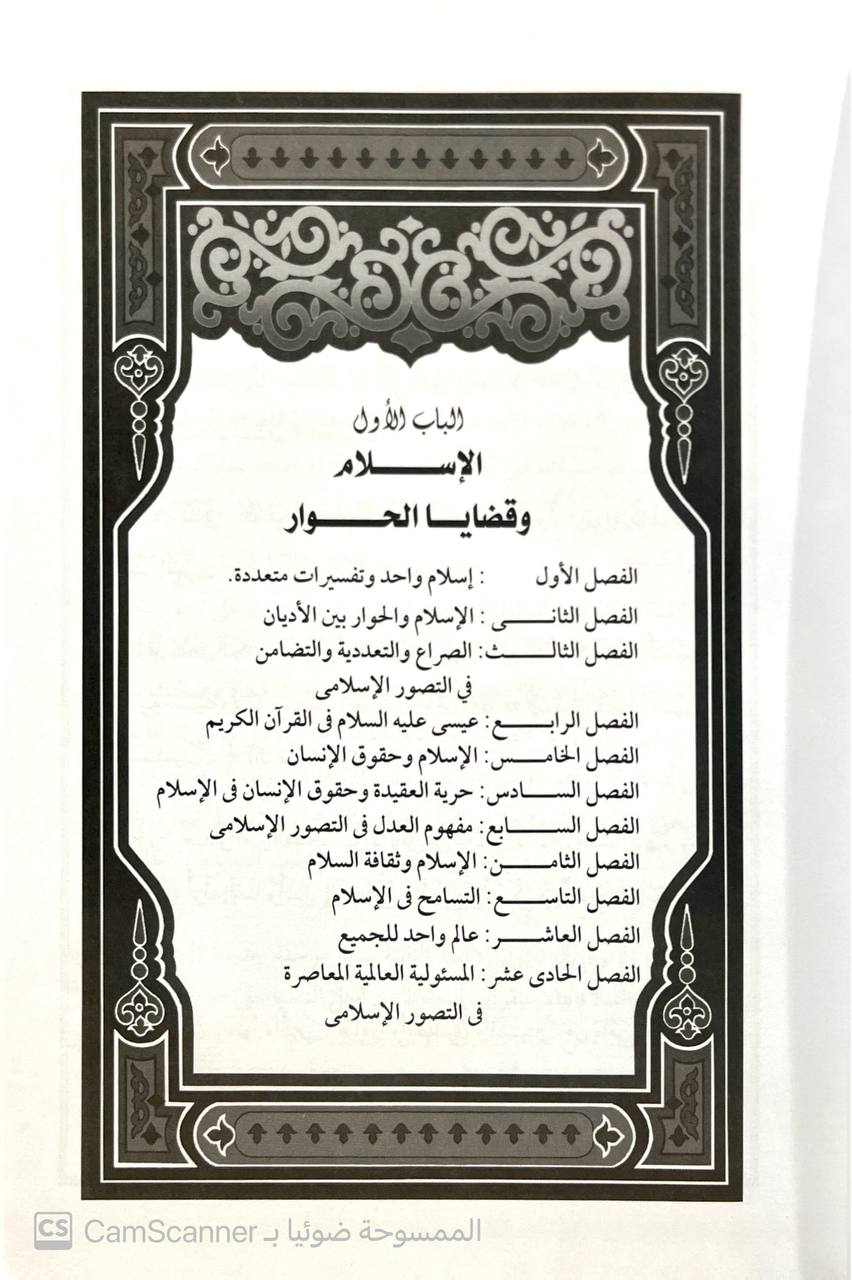 الباب الأول
الإسلام
وقضايا الحوار
الفصل الأول : إسلام واحد وتفسيرات متعددة.
الفصل الثانى : الإسلام والحوار بين الأديان
الفصل الثالث: الصراع والتعددية والتضامن
في التصور الإسلامى
الفصل الرابع: عيسى عليه السلام فى القرآن الكريم
الفصل الخامس: الإسلام وحقوق الإنسان
الفصل السادس: حرية العقيدة وحقوق الإنسان فى الإسلام
الفصل السابع: مفهوم العدل فى التصور الإسلامى
الفصل الثامن: الإسلام وثقافة السلام
الفصل التاسع: التسامح فى الإسلام
الفصل العاشر: عالم واحد للجميع
الفصل الحادى عشر: المسئولية العالمية المعاصرة
فى التصور الإسلامى
الممسوحة ضوئيا بـ CamScanner
CS